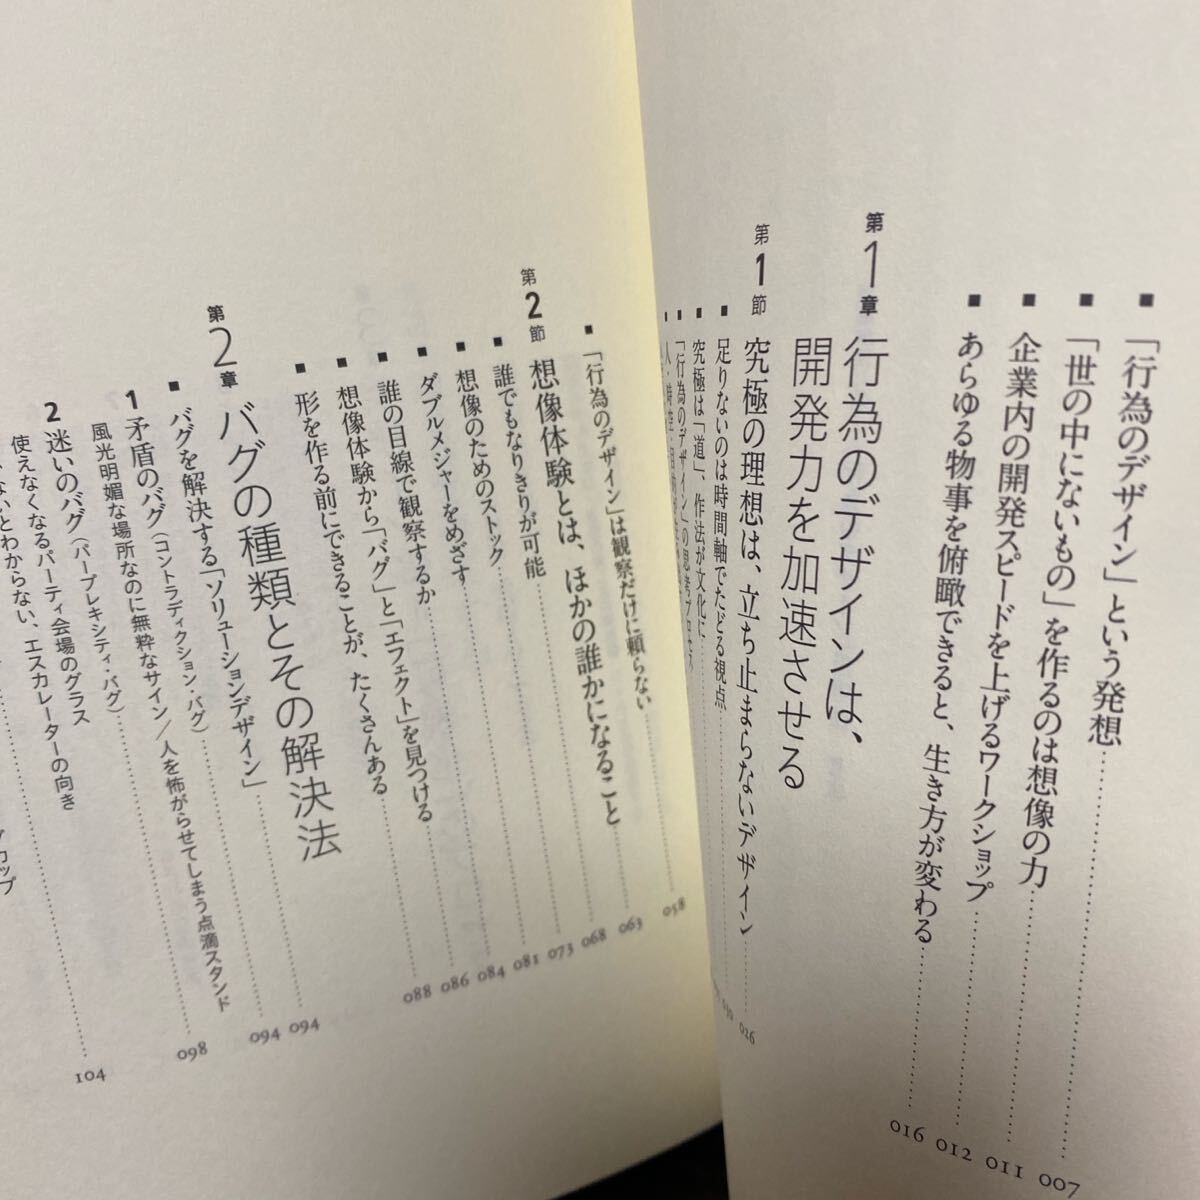 ■「行為のデザイン」という発想 007
■「世の中にないもの」を作るのは想像の力 011
■企業内の開発スピードを上げるワークショップ 012
■あらゆる物事を俯瞰できると、生き方が変わる 016
第1章 行為のデザインは、
開発力を加速させる
第1節 究極の理想は、立ち止まらないデザイン 026
■足りないのは時間軸でたどる視点 030
■究極は「道」、作法が文化に
■「行為のデザイン」の思考プロセス
■人・時空・
■「行為のデザイン」は観察だけに頼らない 058
第2節 想像体験とは、ほかの誰かになること 063
■誰でもなりきりが可能 068
■想像のためのストック 073
■ダブルメジャーをめざす 081
■誰の目線で観察するか 084
■想像体験から「バグ」と「エフェクト」を見つける 086
■形を作る前にできることが、たくさんある 088
第2章 バグの種類とその解決法 094
■バグを解決する「ソリューションデザイン」 094
1 矛盾のバグ(コントラディクション・バグ) 098
風光明媚な場所なのに無粋なサイン/人を怖がらせてしまう点滴スタンド
2 迷いのバグ(パープレキシティ・バグ) 104
使えなくなるパーティ会場のグラス
ないとわからない、エスカレーターの向き
カップ